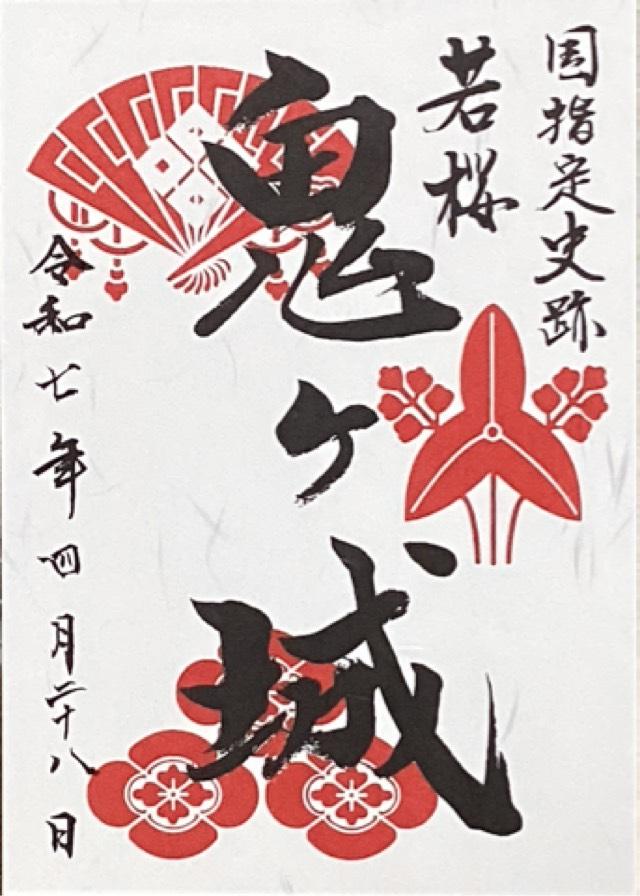 国指定史跡
若桜
鬼ヶ城
令和七年四月二十八日